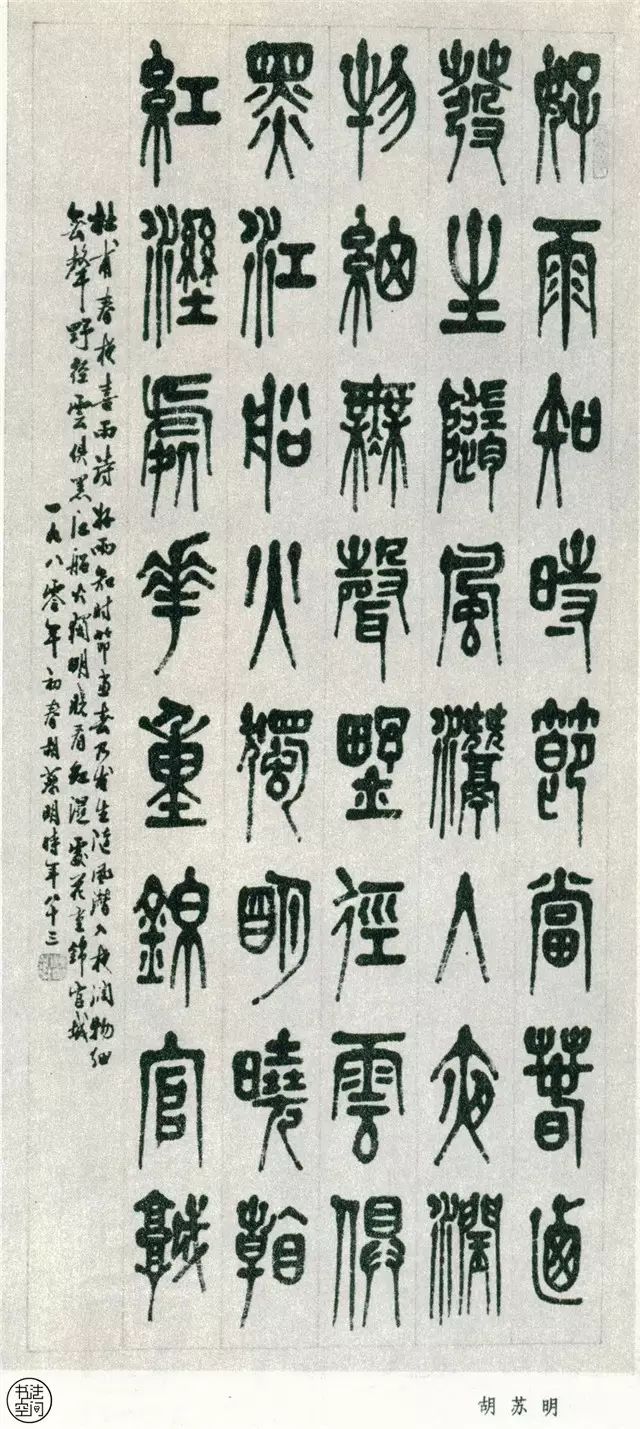 好雨知時節當春迺
發生隨風潛入夜潤
物細無聲野徑雲俱
黑江船火獨明曉看
紅溼處花重錦官城
杜甫春夜喜雨詩 好雨知时節當春乃發生随風潜入夜润物细
無聲野径雲俱黑江船火獨明曉看红湿處花重錦官城
一九八零年初春胡蘇明時年八十三
胡苏明
书法
空间